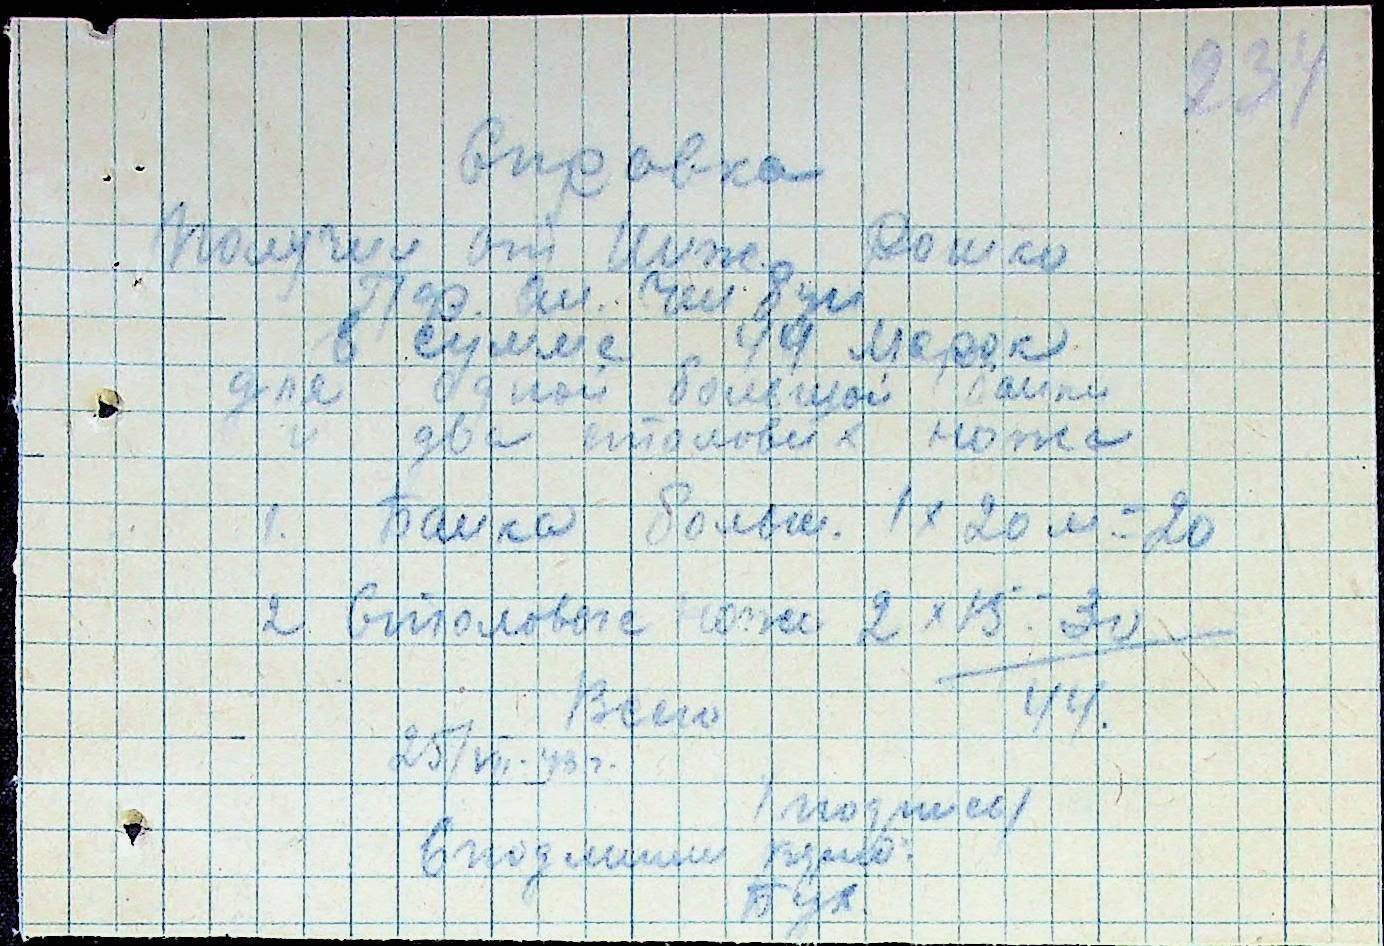 234
Справка
Получил от Инж. Дошко
в сумме 44 марок
для одной большой банки
и два столових ножа
1. Банка больш. 1 x 20 м = 20
2 Столовые ножи 2 x 15 - 30
Всего 44.
25/VII-43 г.
/подпись/
С подлинным
Бух